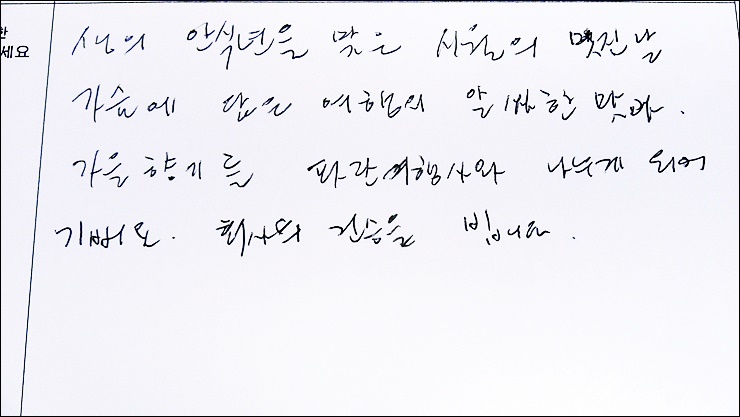 한
세요
생의 안식년을 맞은 시월의 멋진날
가슴에 담은 여행의 알싸한 맛과.
가을향기를 파란여행사와 나누게 되어
기뻐요. 회사의 건승을 빕니다.